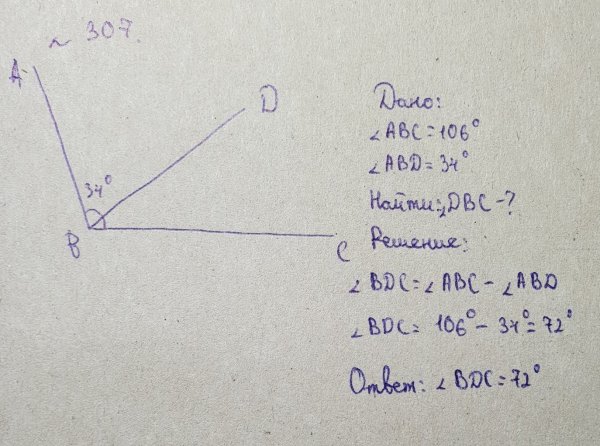 ~ 307.
A
D
34°
B
C
Дано:
∠ABC = 106°
∠ABD = 34°
Найти: ∠DBC - ?
Решение:
∠BDC = ∠ABC - ∠ABD
∠BDC = 106° - 34° = 72°
Ответ: ∠BDC = 72°